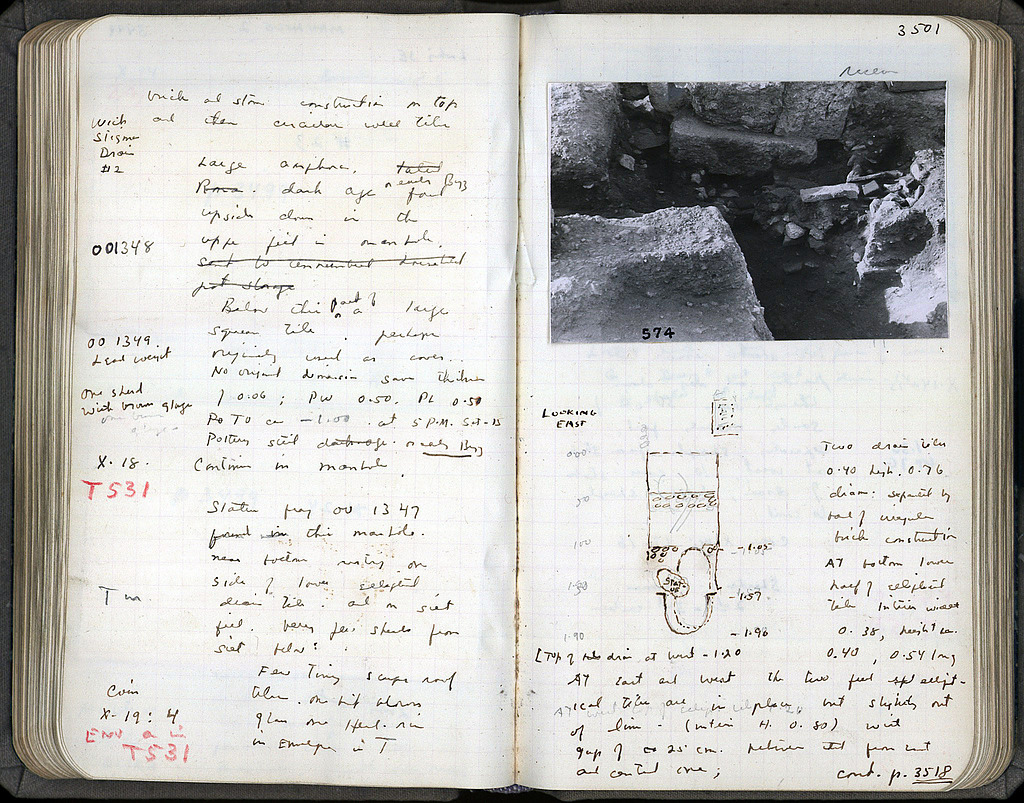 brick and stone construction on top
with and then circular well tile
Sigma
Drain
#2
Large amphora,
dark age or early Byz found
upside down in the
001348
upper fill in manhole.
Below this part of a large
square tile. perhaps
001349.
Lead weight
originally used as cover..
No original dimension save thickness
One sherd
with brown glaze
0.06 ; PW 0.50, PL 0.50
Po To ca -1.00. at 5 P.M. Sat-15
Pottery still dark age. or early Byz
X.18.
Continue in manhole.
T531
Statue frag 00 1347
found in this manhole.
near bottom resting on
side of lower elliptical
drain tile. and in silt
fill. very few sherds from
silt below:
Few tiny scraps roof
tiles. one bit blown
glass one
in Envelope in T
Coin
X-19: 4
ENV a in
T531
3501
574
LOOKING
EAST
000
50
100
1.50
1.90
STAT-
UE
-1.05
-1.57
-1.96
Two drain tiles
0.40 high. 0.76
diam: separated by
half of irregular
brick construction
AT bottom lower
half of elliptical
tile Interior width
0.38, height ca.
0.40, 0.54 long
[Top of drain at west -1.20
AT east and west the two feed elliptical
tiles are in place but slightly out
of line - (interior H. 0.80) with
gap of ca 25 cm. between
and central one;
cont. p. 3518